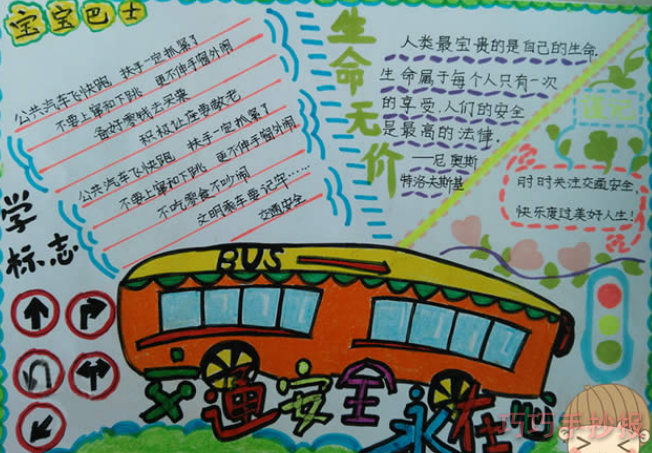 宝宝巴士
公共汽车飞快跑 扶手一定抓紧了
不要上窜和下跳 更不伸手窗外闹
备好零钱去买票
积极让座要敬老
公共汽车飞快跑 扶手一定抓紧了
不要上窜和下跳 更不伸手窗外闹
不吃零食不吵闹
文明乘车要记牢……
交通安全
生命无价
人类最宝贵的是自己的生命.
生命属于每个人只有一次
的享受,人们的安全
是最高的法律.
——尼奥斯
特洛夫斯基
时时关注交通安全,
快乐度过美好人生!
学
标志
BUS
交通安全
永在心
巧巧手抄报